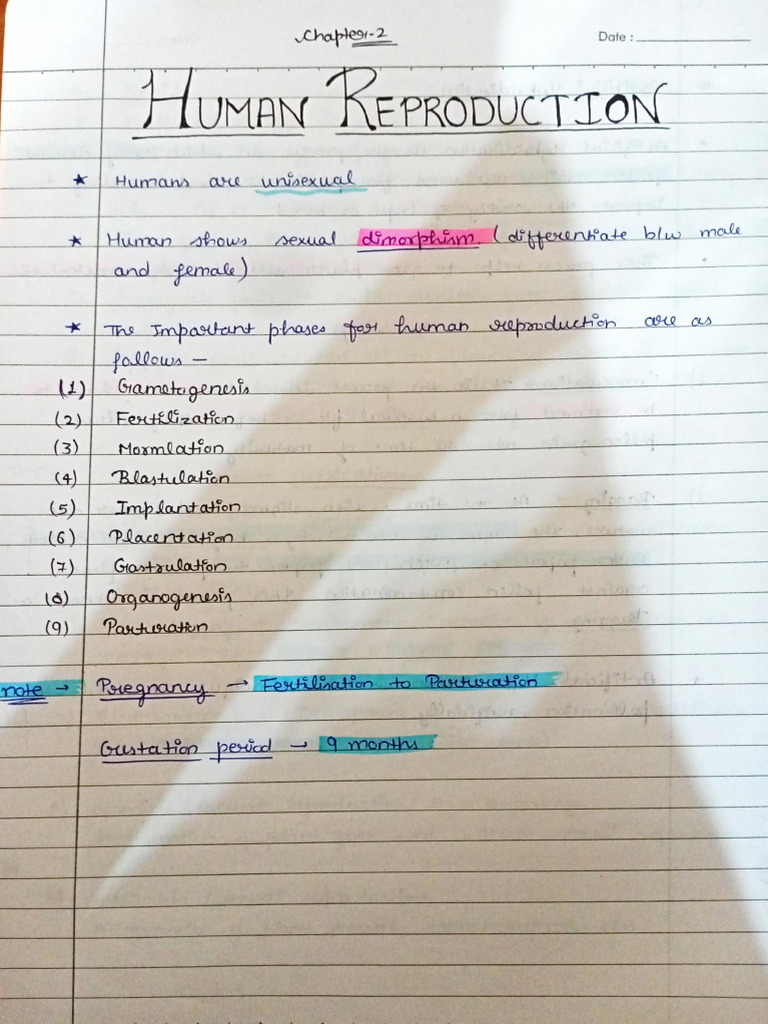 Chapter-2
Date :
HUMAN REPRODUCTION
★ Humans are unisexual
★ Human shows sexual dimorphism (differentiate b/w male
and female)
★ The Important phases for human reproduction are as
follows —
(1) Gametogenesis
(2) Fertilization
(3) Mormlation
(4) Blastulation
(5) Implantation
(6) Placentation
(7) Gastrulation
(8) Organogenesis
(9) Parturation
note → Pregnancy → Fertilisation to Parturation
Gustation period → 9 months